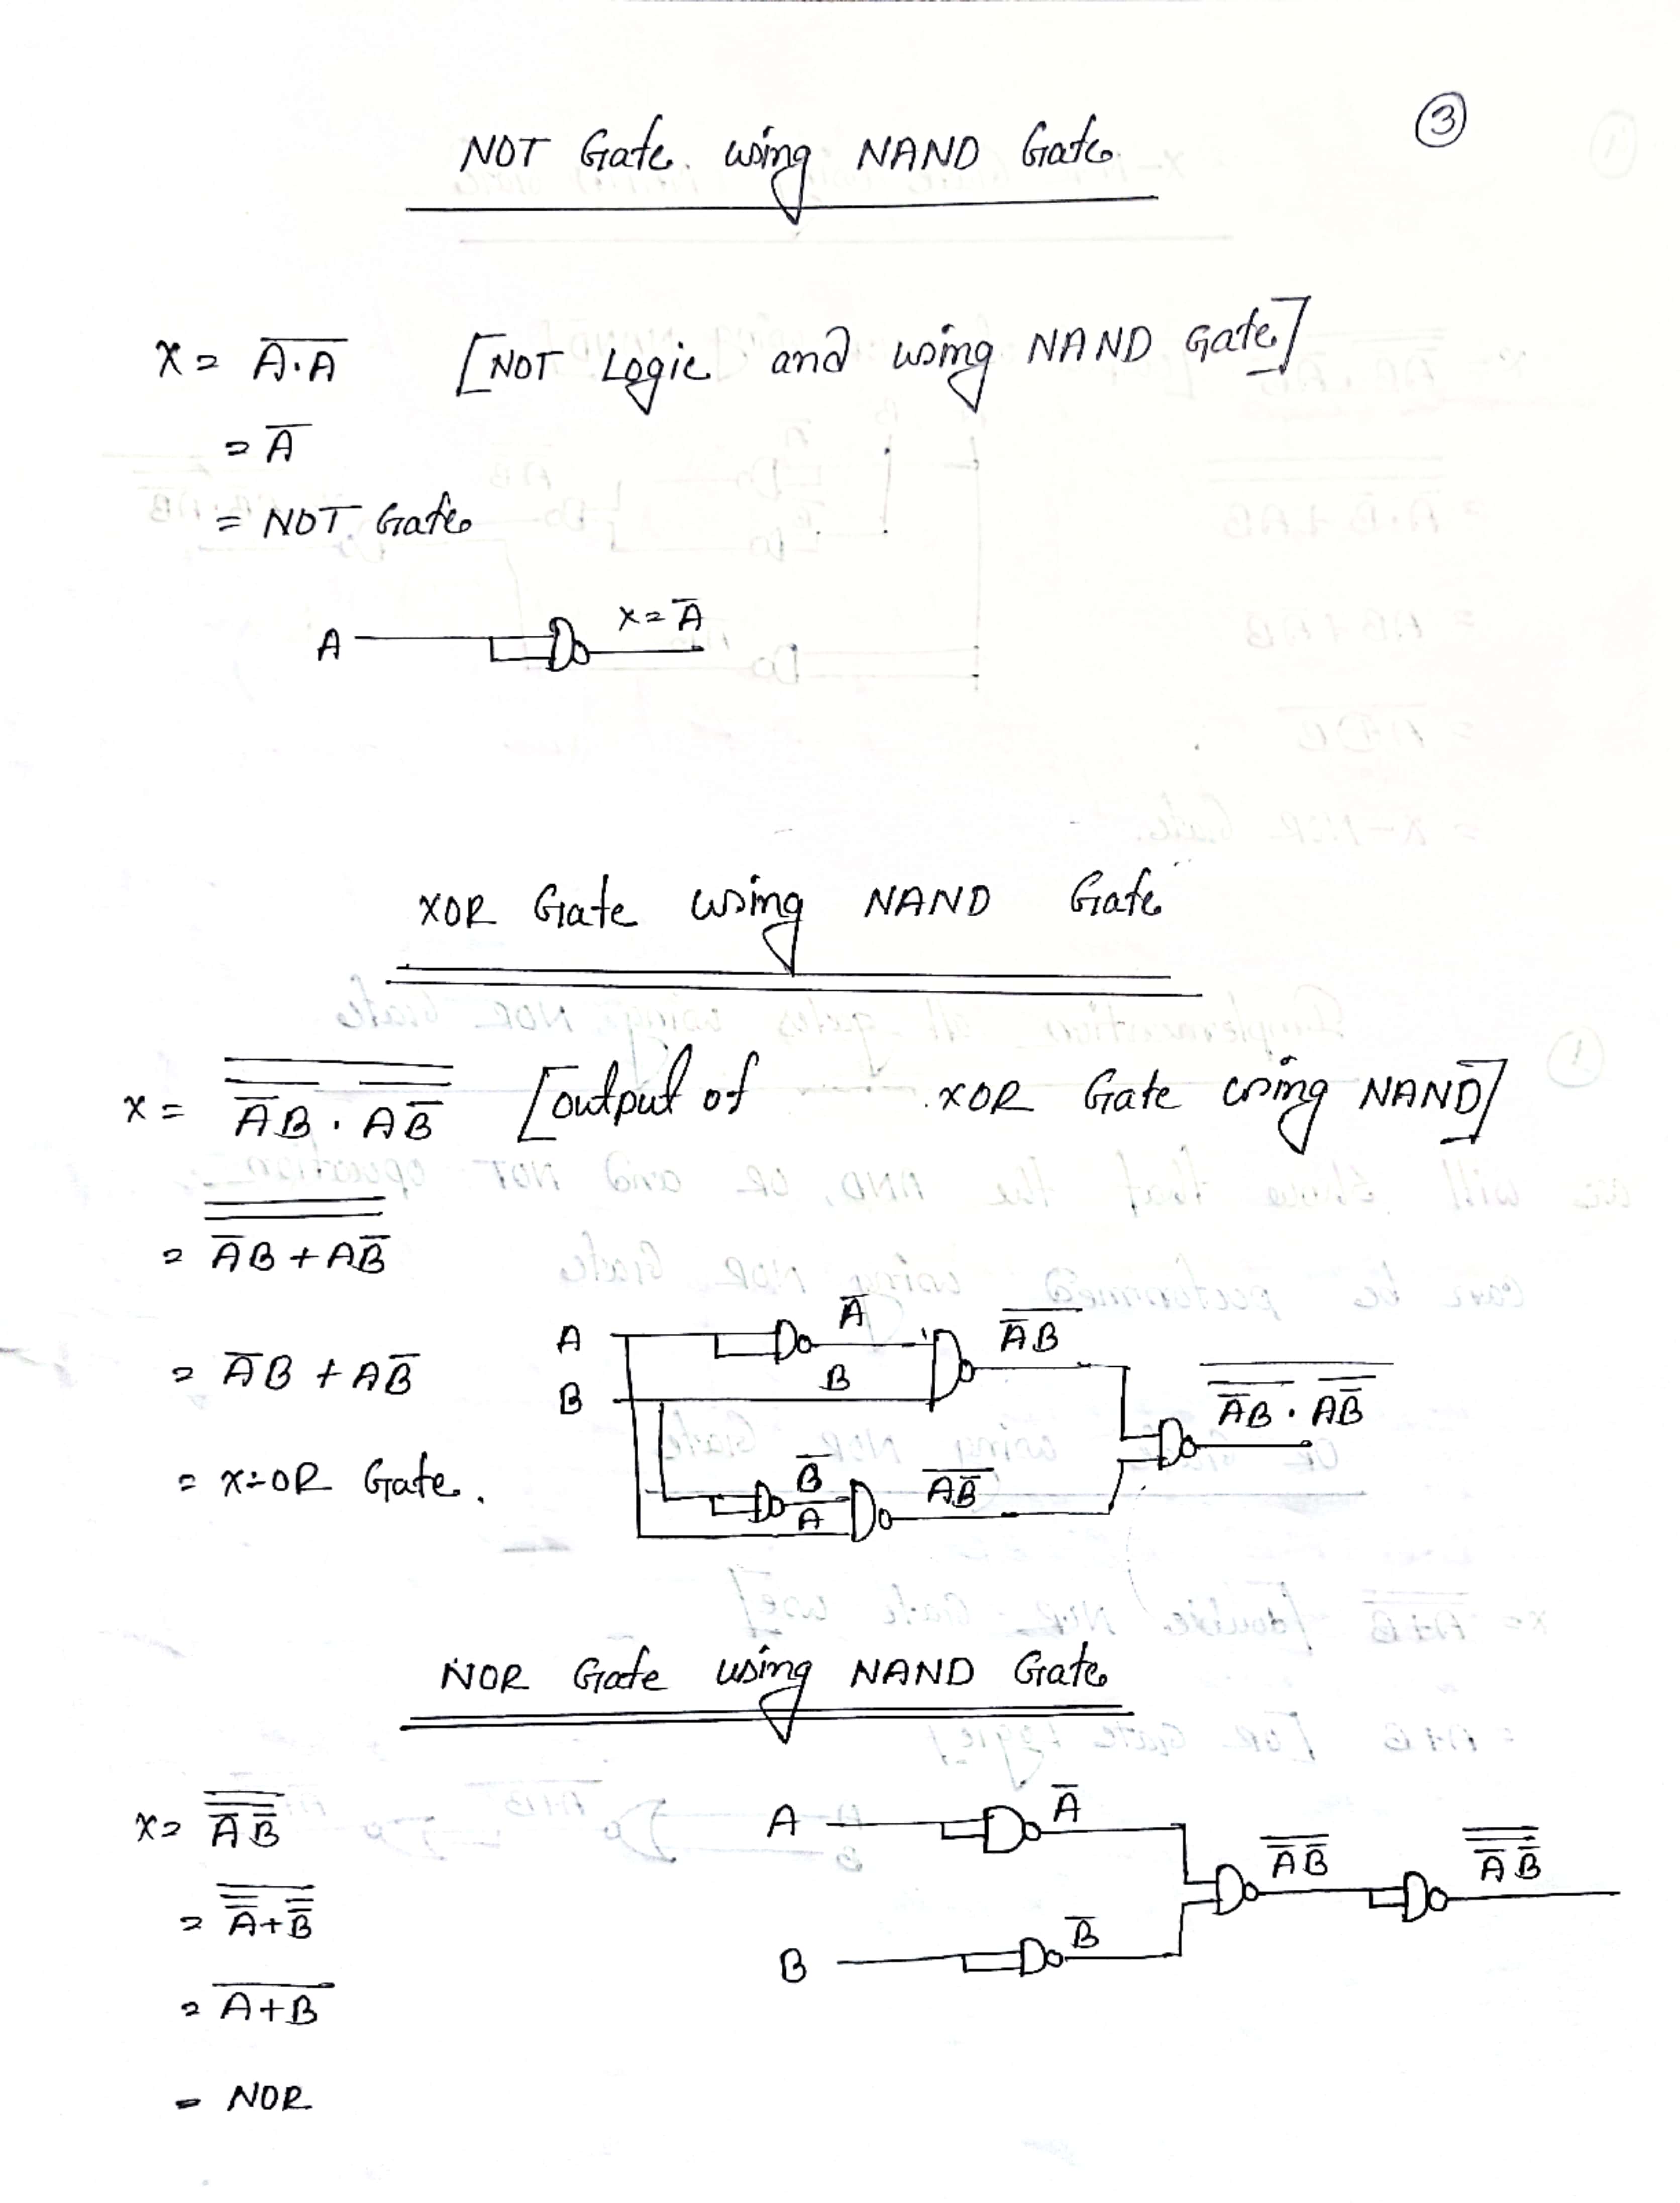 ③
NOT Gate using NAND Gate
X = \overline{A.A} [NOT Logic and using NAND Gate]
= \overline{A}
= NOT Gate
A X = \overline{A}
XOR Gate using NAND Gate
X = \overline{\overline{\overline{\overline{A}B} . \overline{A\overline{B}}}} [output of XOR Gate using NAND]
= \overline{\overline{\overline{A}B + A\overline{B}}}
= \overline{A}B + A\overline{B}
= X-OR Gate.
A \overline{A} \overline{\overline{A}B}
B B \overline{\overline{\overline{A}B} . \overline{A\overline{B}}}
\overline{B} \overline{A\overline{B}}
A
NOR Gate using NAND Gate
X = \overline{\overline{\overline{A}\,\overline{B}}}
= \overline{\overline{\overline{A}} + \overline{\overline{B}}}
= \overline{A+B}
= NOR
A \overline{A} \overline{\overline{A}\,\overline{B}} \overline{\overline{\overline{A}\,\overline{B}}}
B \overline{B}